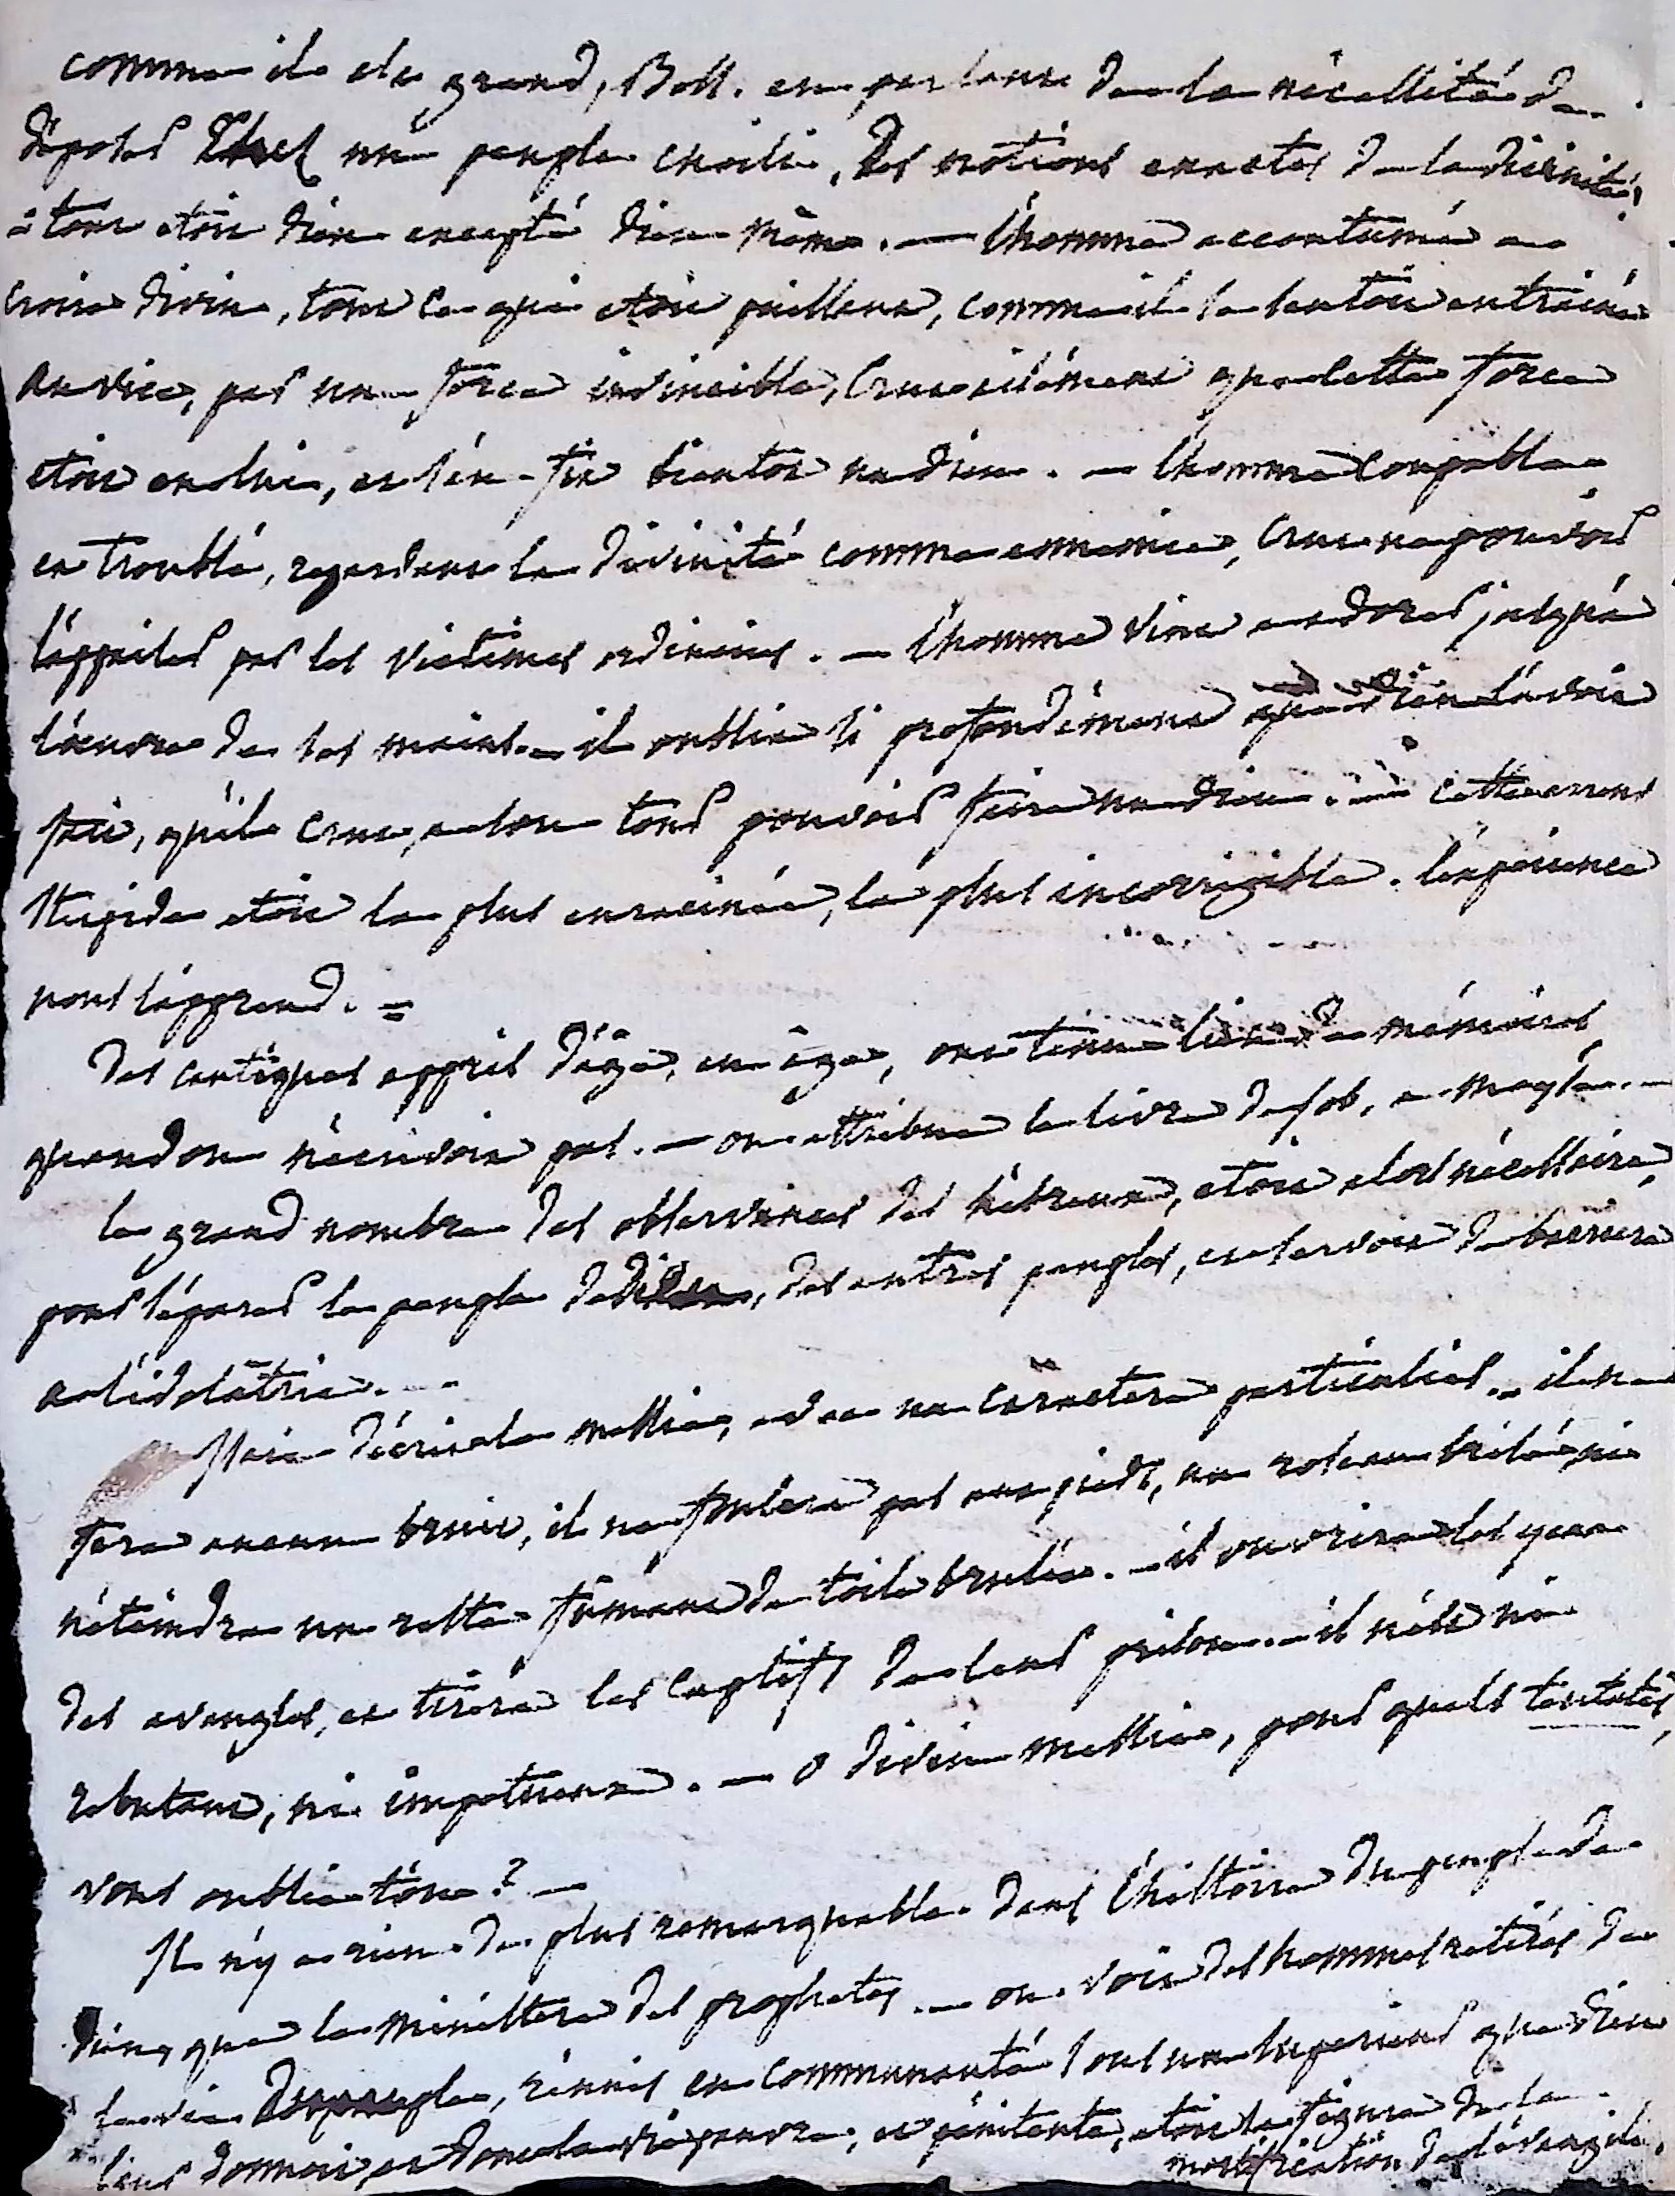 comme il est grand, Boss. en parlant de la nécessité de
déposer chez un peuple choisi, des notions exactes de la divinité,
tout etoit dieu excepté dieu même. — l'homme accoutumé a
croire divin, tout ce qui etoit puissant, comme il se sentoit entrainé
au vice, par une force invincible, crut aisément que cette force
etoit en lui, et s'en fit bientot un dieu. — l'homme coupable
et troublé, regardant la divinité comme ennemie, crut ne pouvoir
l'appaiser par les victimes ordinaires. — l'homme vint a adorer jusqu'a
l'œuvre de ses mains. — il oublia si profondément que dieu l'avoit
fait, qu'il crut, a son tour pouvoir faire un dieu. cette erreur
stupide etoit la plus enracinée, la plus incorrigible. l'expérience
nous l'apprend. =
Des cantiques appris d'age, en age, ont tenu lieu de mémoires,
quand on n'écrivoit pas. — on attribue le livre de Job, a Moyse. —
le grand nombre des observances des hébreux, etoit alors nécessaire,
pour séparer le peuple de dieu, des autres peuples, et servoit de barriere
a l'idolatrie. —
Isaie décrit le messie, avec un caractere particulier. — il ne
fera aucun bruit, il ne foulera pas aux pieds, un roseau brisé, ni
n'éteindra un reste fumant de toile brulée. — il ouvrira les yeux
des aveugles, et tirera les captifs de leur prison. — il n'est ni
rebutant, ni impatient. — o divin messie, pour quels tentates,
vous oublie-t'on? —
Il n'y a rien de plus remarquable dans l'histoire du peuple de
dieu, que le ministere des prophetes. — on voit des hommes retirés de
la vie du peuple, réunis en communauté sous un superieur que dieu
leur donnoit, et dont la vie pauvre, et pénitente, etoit la figure de la
mortification de l'évangile.